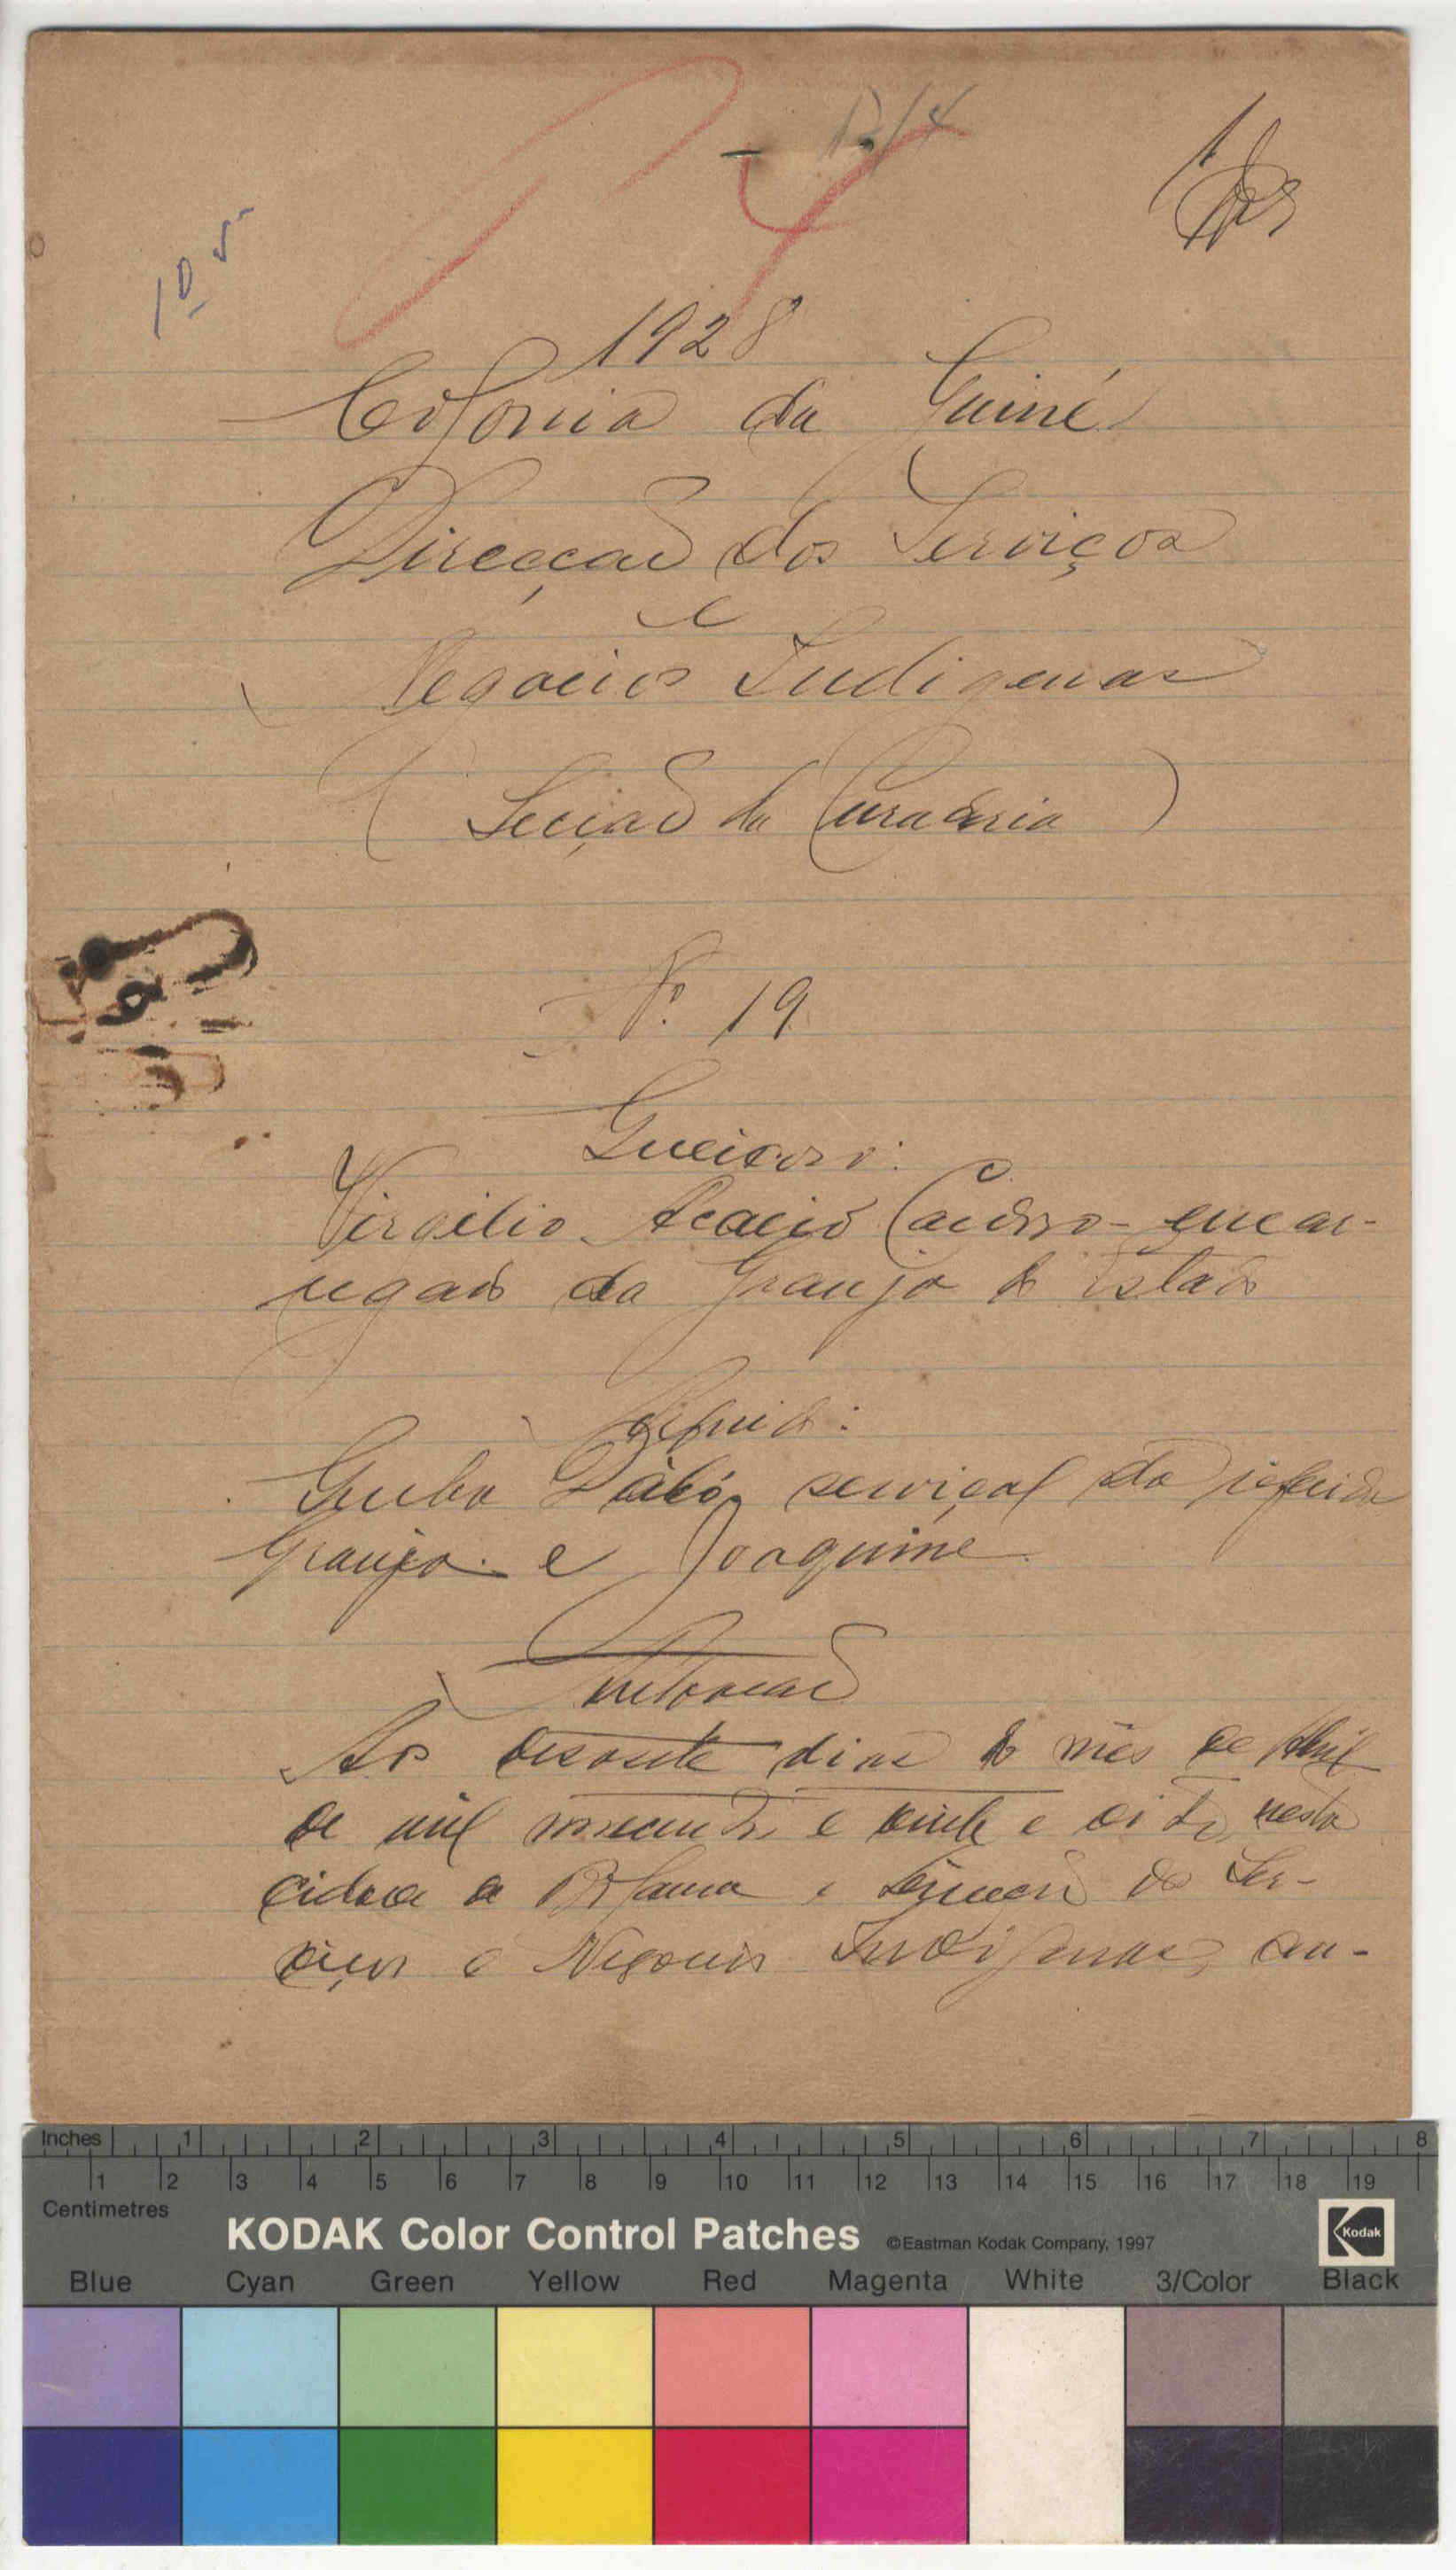 10
1928
Colonia da Guiné
Direcção dos Serviços
e
Negocios Indigenas
(Secção da Curadoria)
Nº 19
Queixoso:
Virgilio Acacio Cardoso - encar-
regado da Granja do Estado
Arguido:
Dabó, serviçal da referida
Granja e Joaquim
Autoação
Aos desasete dias do mês de Abril
de mil novecentos e vinte e oito, nesta
cidade de Bolama e Direcção dos Ser-
viços e Negocios Indigenas, au-
Inches 1 2 3 4 5 6 7 8
1 2 3 4 5 6 7 8 9 10 11 12 13 14 15 16 17 18 19
Centimetres
KODAK Color Control Patches ©Eastman Kodak Company, 1997 Kodak
Blue Cyan Green Yellow Red Magenta White 3/Color Black